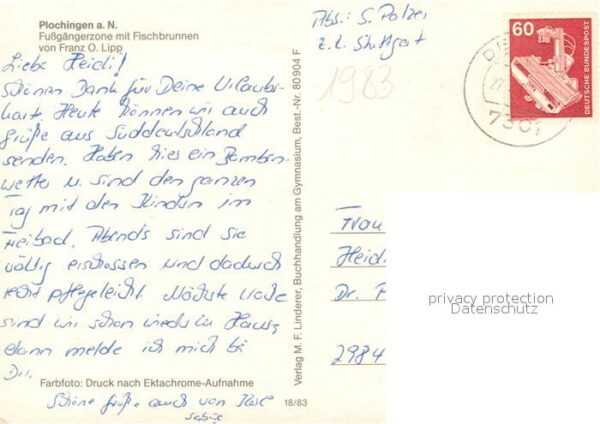 Plochingen a. N.
Fußgängerzone mit Fischbrunnen
von Franz O. Lipp
Liebe Heidi!
Schönen Dank für Deine Urlaubs-
karte. Heute können wir auch
Grüße aus Süddeutschland
senden. Haben hier ein Bomben-
wetter u. sind den ganzen
Tag mit den Kindern im
Freibad. Abends sind sie
völlig erschossen und dadurch
recht pflegeleicht. Nächste Woche
sind wir schon wieder zu Hause,
dann melde ich mich bei
Dir.
Farbfoto: Druck nach Ektachrome-Aufnahme
Schöne Grüße auch von
18/83
Verlag M. F. Linderer, Buchhandlung am Gymnasium, Best.-Nr. 80904 F
Abs.: S. Palzer
z. Z. Stuttgart
1983
60
DEUTSCHE BUNDESPOST
7301
Frau
Heidi
Dr. F
2984
privacy protection
Datenschutz